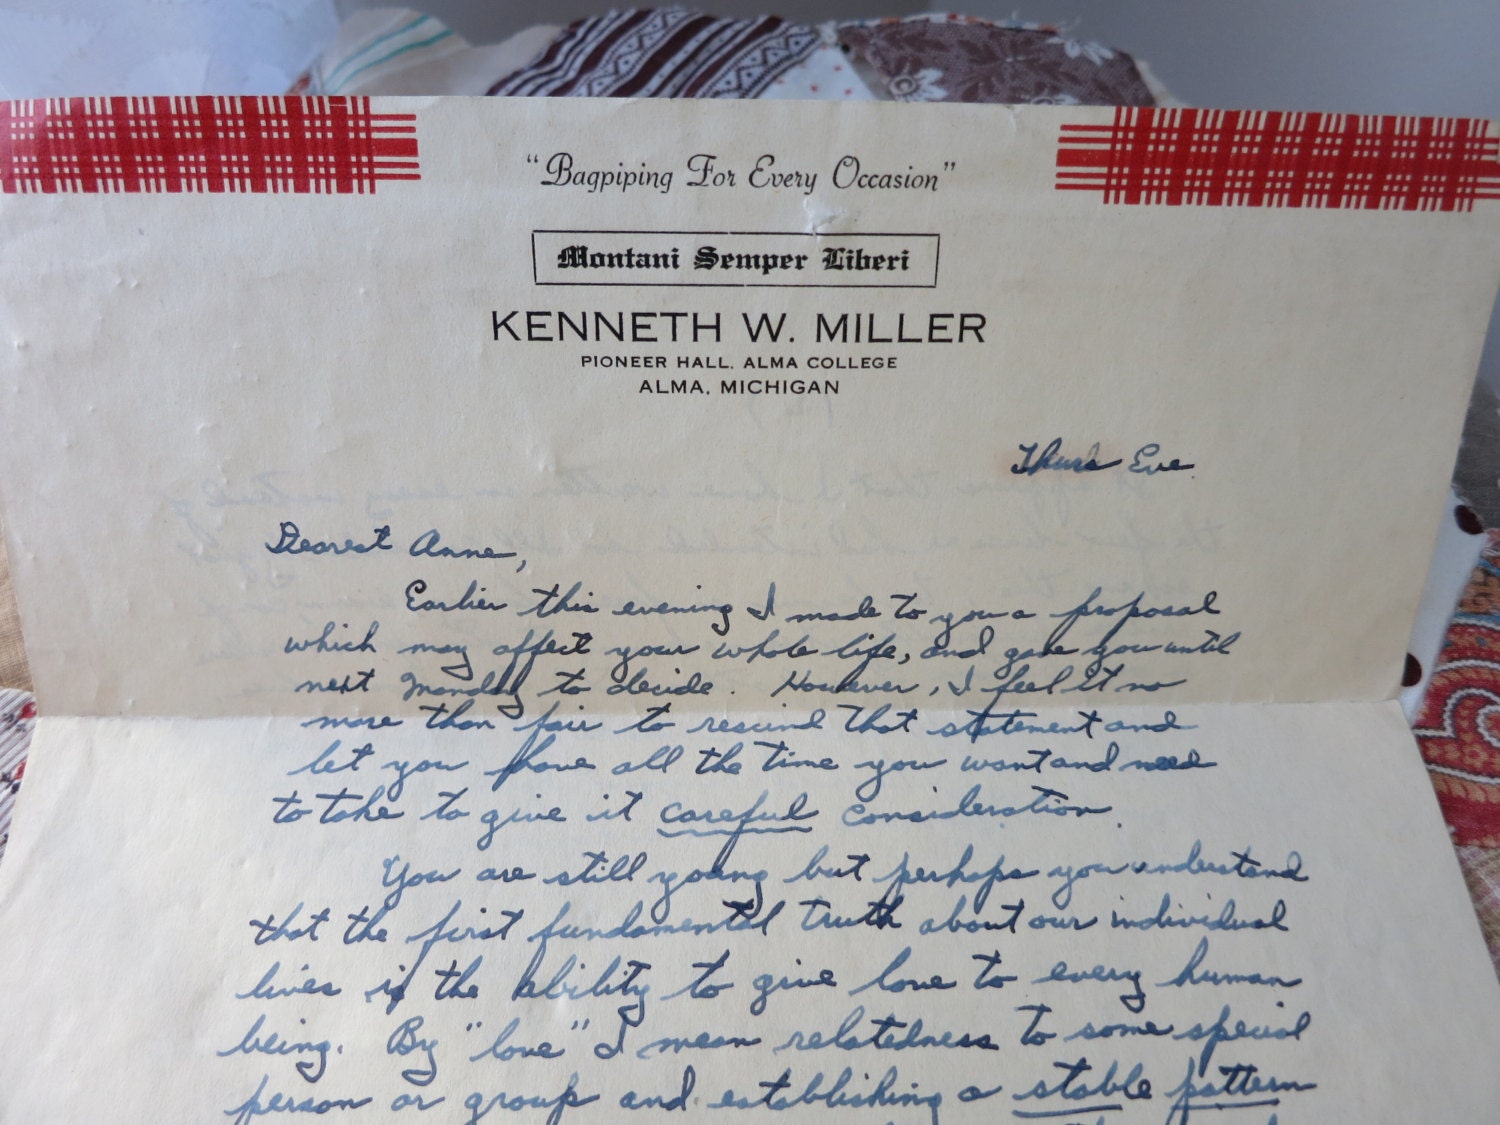 "Bagpiping For Every Occasion"
Montani Semper Liberi
KENNETH W. MILLER
PIONEER HALL, ALMA COLLEGE
ALMA, MICHIGAN
Thurs Eve.
Dearest Anne,
Earlier this evening I made to you a proposal
which may affect your whole life, and gave you until
next Monday to decide. However, I feel it no
more than fair to rescind that statement and
let you have all the time you want and need
to take to give it careful consideration.
You are still young but perhaps you understand
that the first fundamental truth about our individual
lives is the ability to give love to every human
being. By "love" I mean relatedness to some special
person or group and establishing a stable pattern